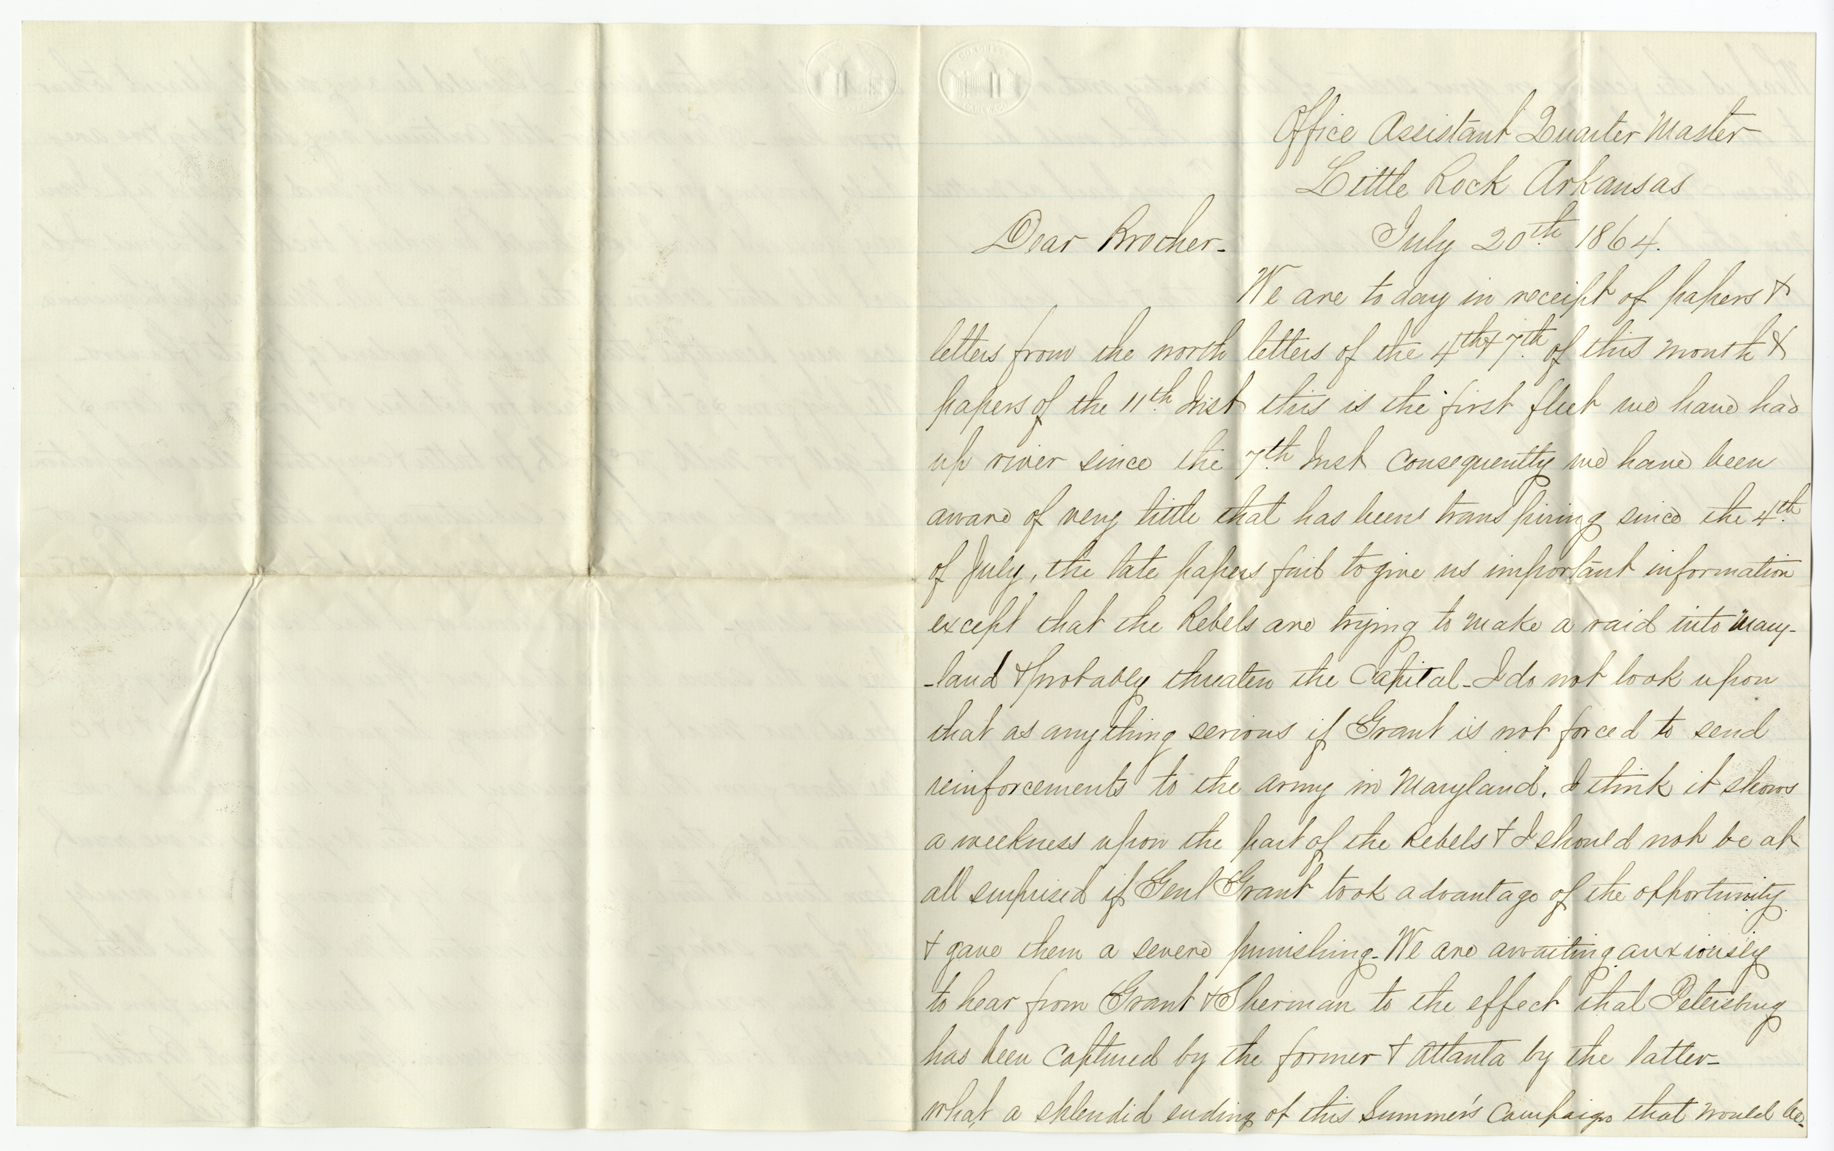 Office Assistant Quarter Master
Little Rock Arkansas
July 20th 1864.
Dear Brother-
We are to day in receipt of papers &
letters from the north letters of the 4th & 7th of this month &
papers of the 11th Inst this is the first fleet we have had
up river since the 7th Inst Consequently we have been
aware of very little that has been transpiring since the 4th
of July, the late papers fail to give us important information
except that the Rebels are trying to make a raid into Mary-
-land & probably threaten the Capital - I do not look upon
that as any thing serious if Grant is not forced to send
reinforcements to the army in Maryland. I think it shows
a weekness upon the part of the Rebels & I should not be at
all surprised if Genl Grant took advantage of the opportunity
& gave them a severe punishing - We are awaiting anxiously
to hear from Grant & Sherman to the effect that Petersburg
has been captured by the former & Atlanta by the latter-
what a splendid ending of this Summer's Campaign that would be-